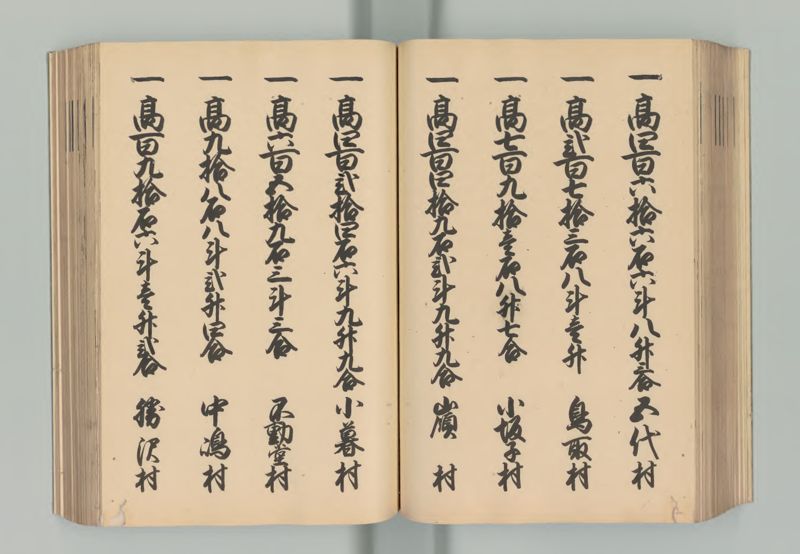 一高四百六拾六石六斗八升六合　五代村
一高弐百七拾三石八斗壱升　鳥取村
一高七百九拾壱石八升七合　小坂子村
一高四百四拾九石弐斗九升九合　嶺村
一高四百弐拾四石六斗九升九合　小暮村
一高六百五拾九石三斗三合　不動堂村
一高九拾八石八斗弐升四合　中嶋村
一高百九拾石六斗壱升弐合　勝沢村